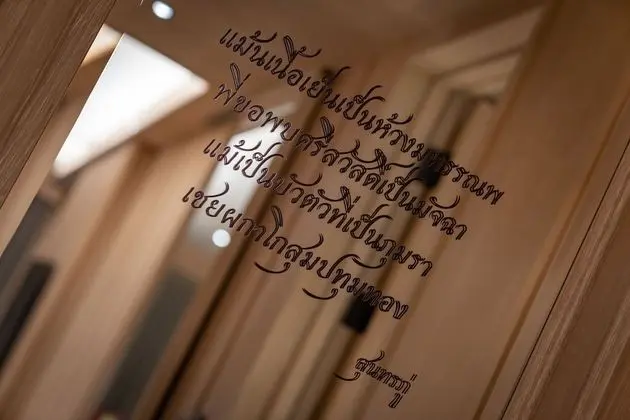 แม้นเนื้อเย็นเป็นห้วงมหรรณพ
พี่ขอพบศรีสวัสดิ์เป็นมัจฉา
แม้เป็นบัวตัวพี่เป็นภุมรา
เชยผกาโกสุมปทุมทอง
สุนทรภู่